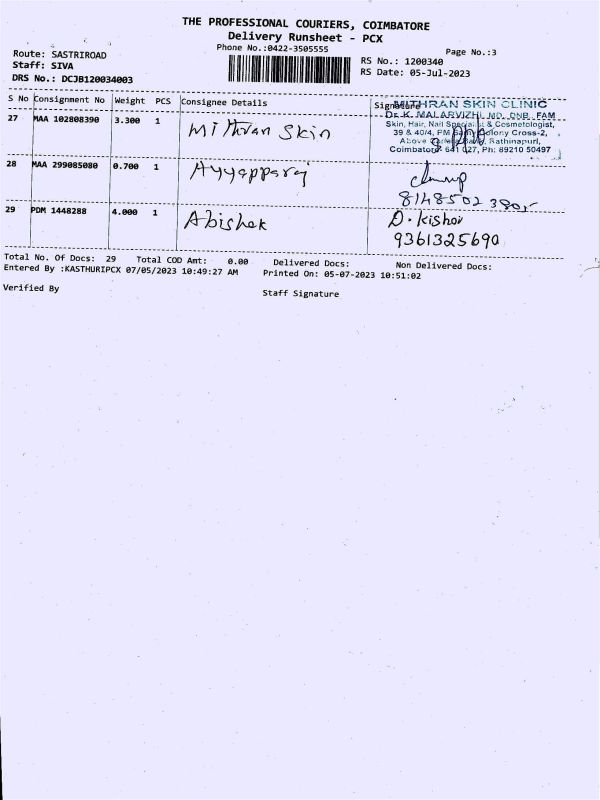 THE PROFESSIONAL COURIERS, COIMBATORE
Delivery Runsheet - PCX
Phone No.:0422-3505555
Page No.:3
Route: SASTRIROAD
RS No.: 1200340
Staff: SIVA
RS Date: 05-Jul-2023
DRS No.: DCJB120034003
S No Consignment No Weight PCS Consignee Details Signature
27 MAA 102808390 3.300 1 Mithran Skin
MITHRAN SKIN CLINIC
Dr. K. MALARVIZHI, MD, DNB, FAM
Skin, Hair, Nail Specialist & Cosmetologist,
39 & 40/4, PM Colony Cross-2,
Above Rathinapuri,
Coimbatore 641 027, Ph: 89210 50497
28 MAA 299085080 0.700 1 Ayyapparaj
8148502380
29 PDM 1448288 4.000 1 Abishek D. Kishor
9361325690
Total No. Of Docs: 29 Total COD Amt: 0.00 Delivered Docs: Non Delivered Docs:
Entered By :KASTHURIPCX 07/05/2023 10:49:27 AM Printed On: 05-07-2023 10:51:02
Verified By Staff Signature